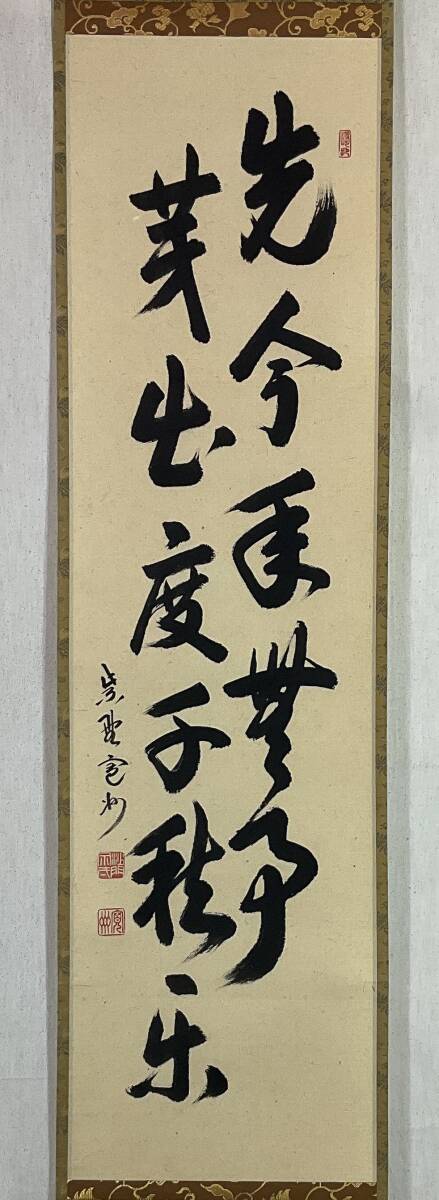 先今年無事
芽出度千秋楽
紫野寛州